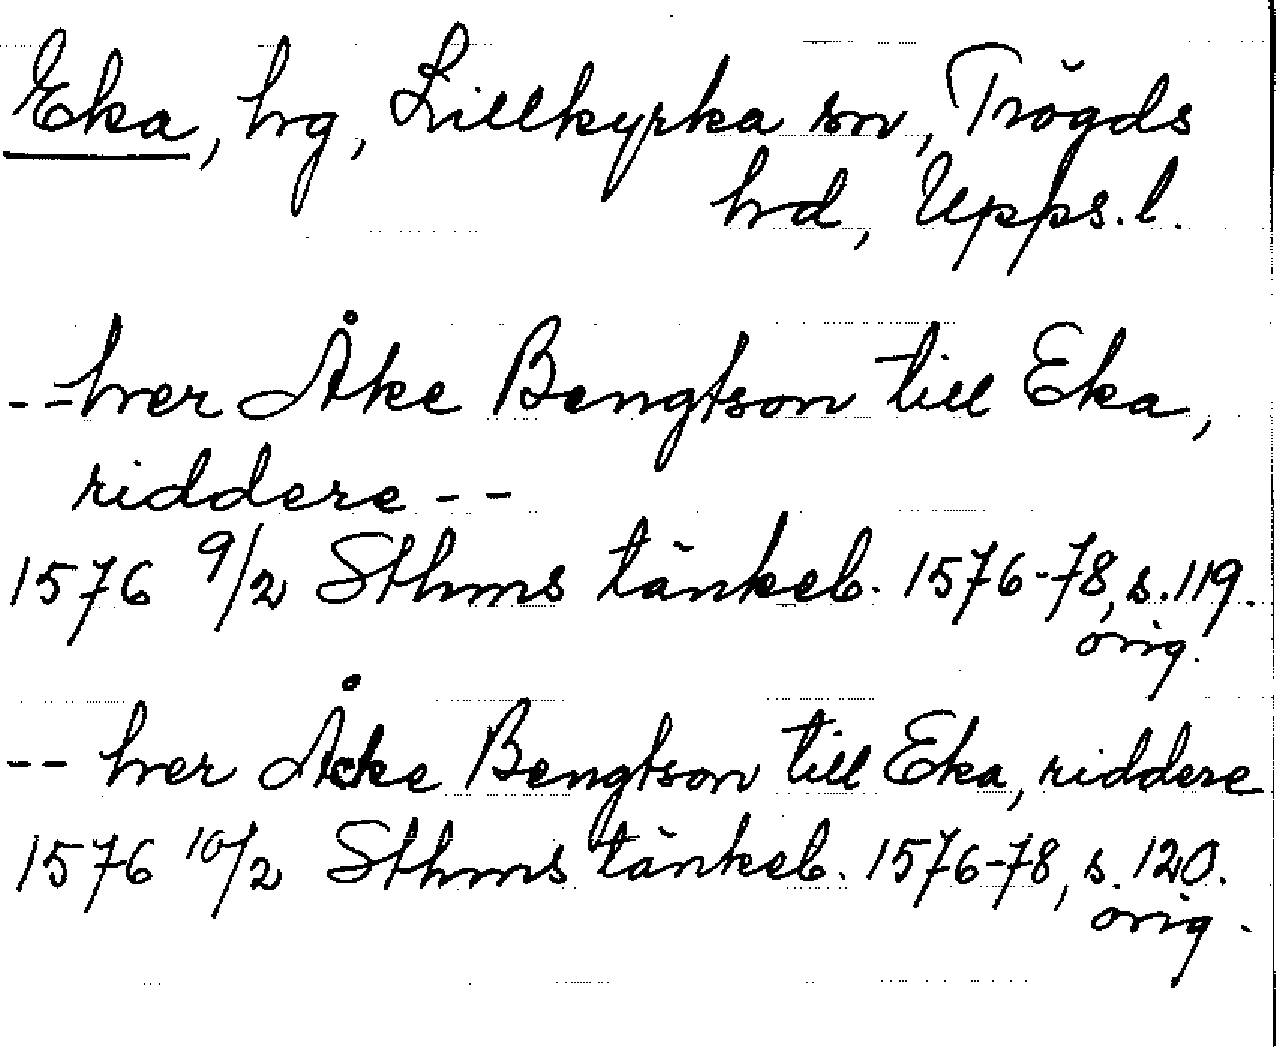 Eka, hg, Lillkyrka sn, Trögds
hd, Upps. l.
-- her Åke Bengtson till Eka,
riddere --
1576 9/2 Sthms tänkeb. 1576-78, s. 119.
orig.
-- her Åcke Bengtson till Eka, riddere
1576 10/2 Sthms tänkeb. 1576-78, s. 120.
orig.